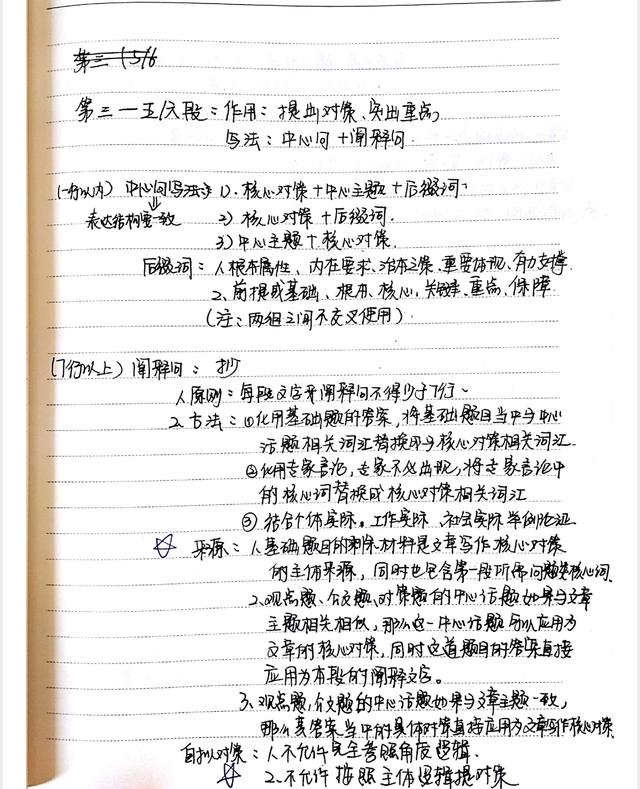 第三一五/六段：作用：提出对策、突出重点
写法：中心句＋阐释句
(一行以内) 中心句写法：1）.核心对策＋中心主题＋后缀词
表达结构要一致 2）核心对策＋后缀词.
3）中心主题＋核心对策.
后缀词：1.根本属性、内在要求、治本之策、重要体现、有力支撑
2、前提或基础、根本、核心、关键、重点、保障
（注：两组之间不交叉使用）
(7行以上) 阐释句：抄
1.原则：每段文字阐释句不得少于7行、
2.方法：①化用基础题的答案，将基础题目当中与中心
话题相关词汇替换成与核心对策相关词汇
②化用专家言论，专家不必出现，将专家言论中
的核心词替换成核心对策相关词汇
③ 结合个体实际。工作实际、社会实际举例论证
来源：1.基础题目的剩余材料是文章写作核心对策
的主体来源，同时也包含第一段所需问题类核心词
2、观点题、公文题、对策题的中心话题如果与文章
主题相关相似，那么这一中心话题可以应用为
文章的核心对策，同时这道题目的答案直接
应用为本段的阐释文字。
3、观点题，公文题的中心话题如果与文章主题一致，
那么其答案当中的具体对策直接应用为文章写作核心对策
自拟对策：1.不允许完全参照角度逻辑.
2.不允许按照主体逻辑提对策